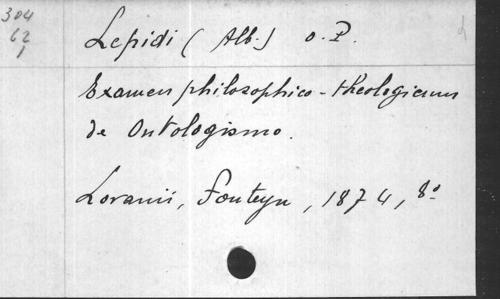 304
62
1
Lepidi (Alb.) O. P.
Examen philosophico-theologicum
de Ontologismo.
Lovanii, Fonteyn, 1874, 8º